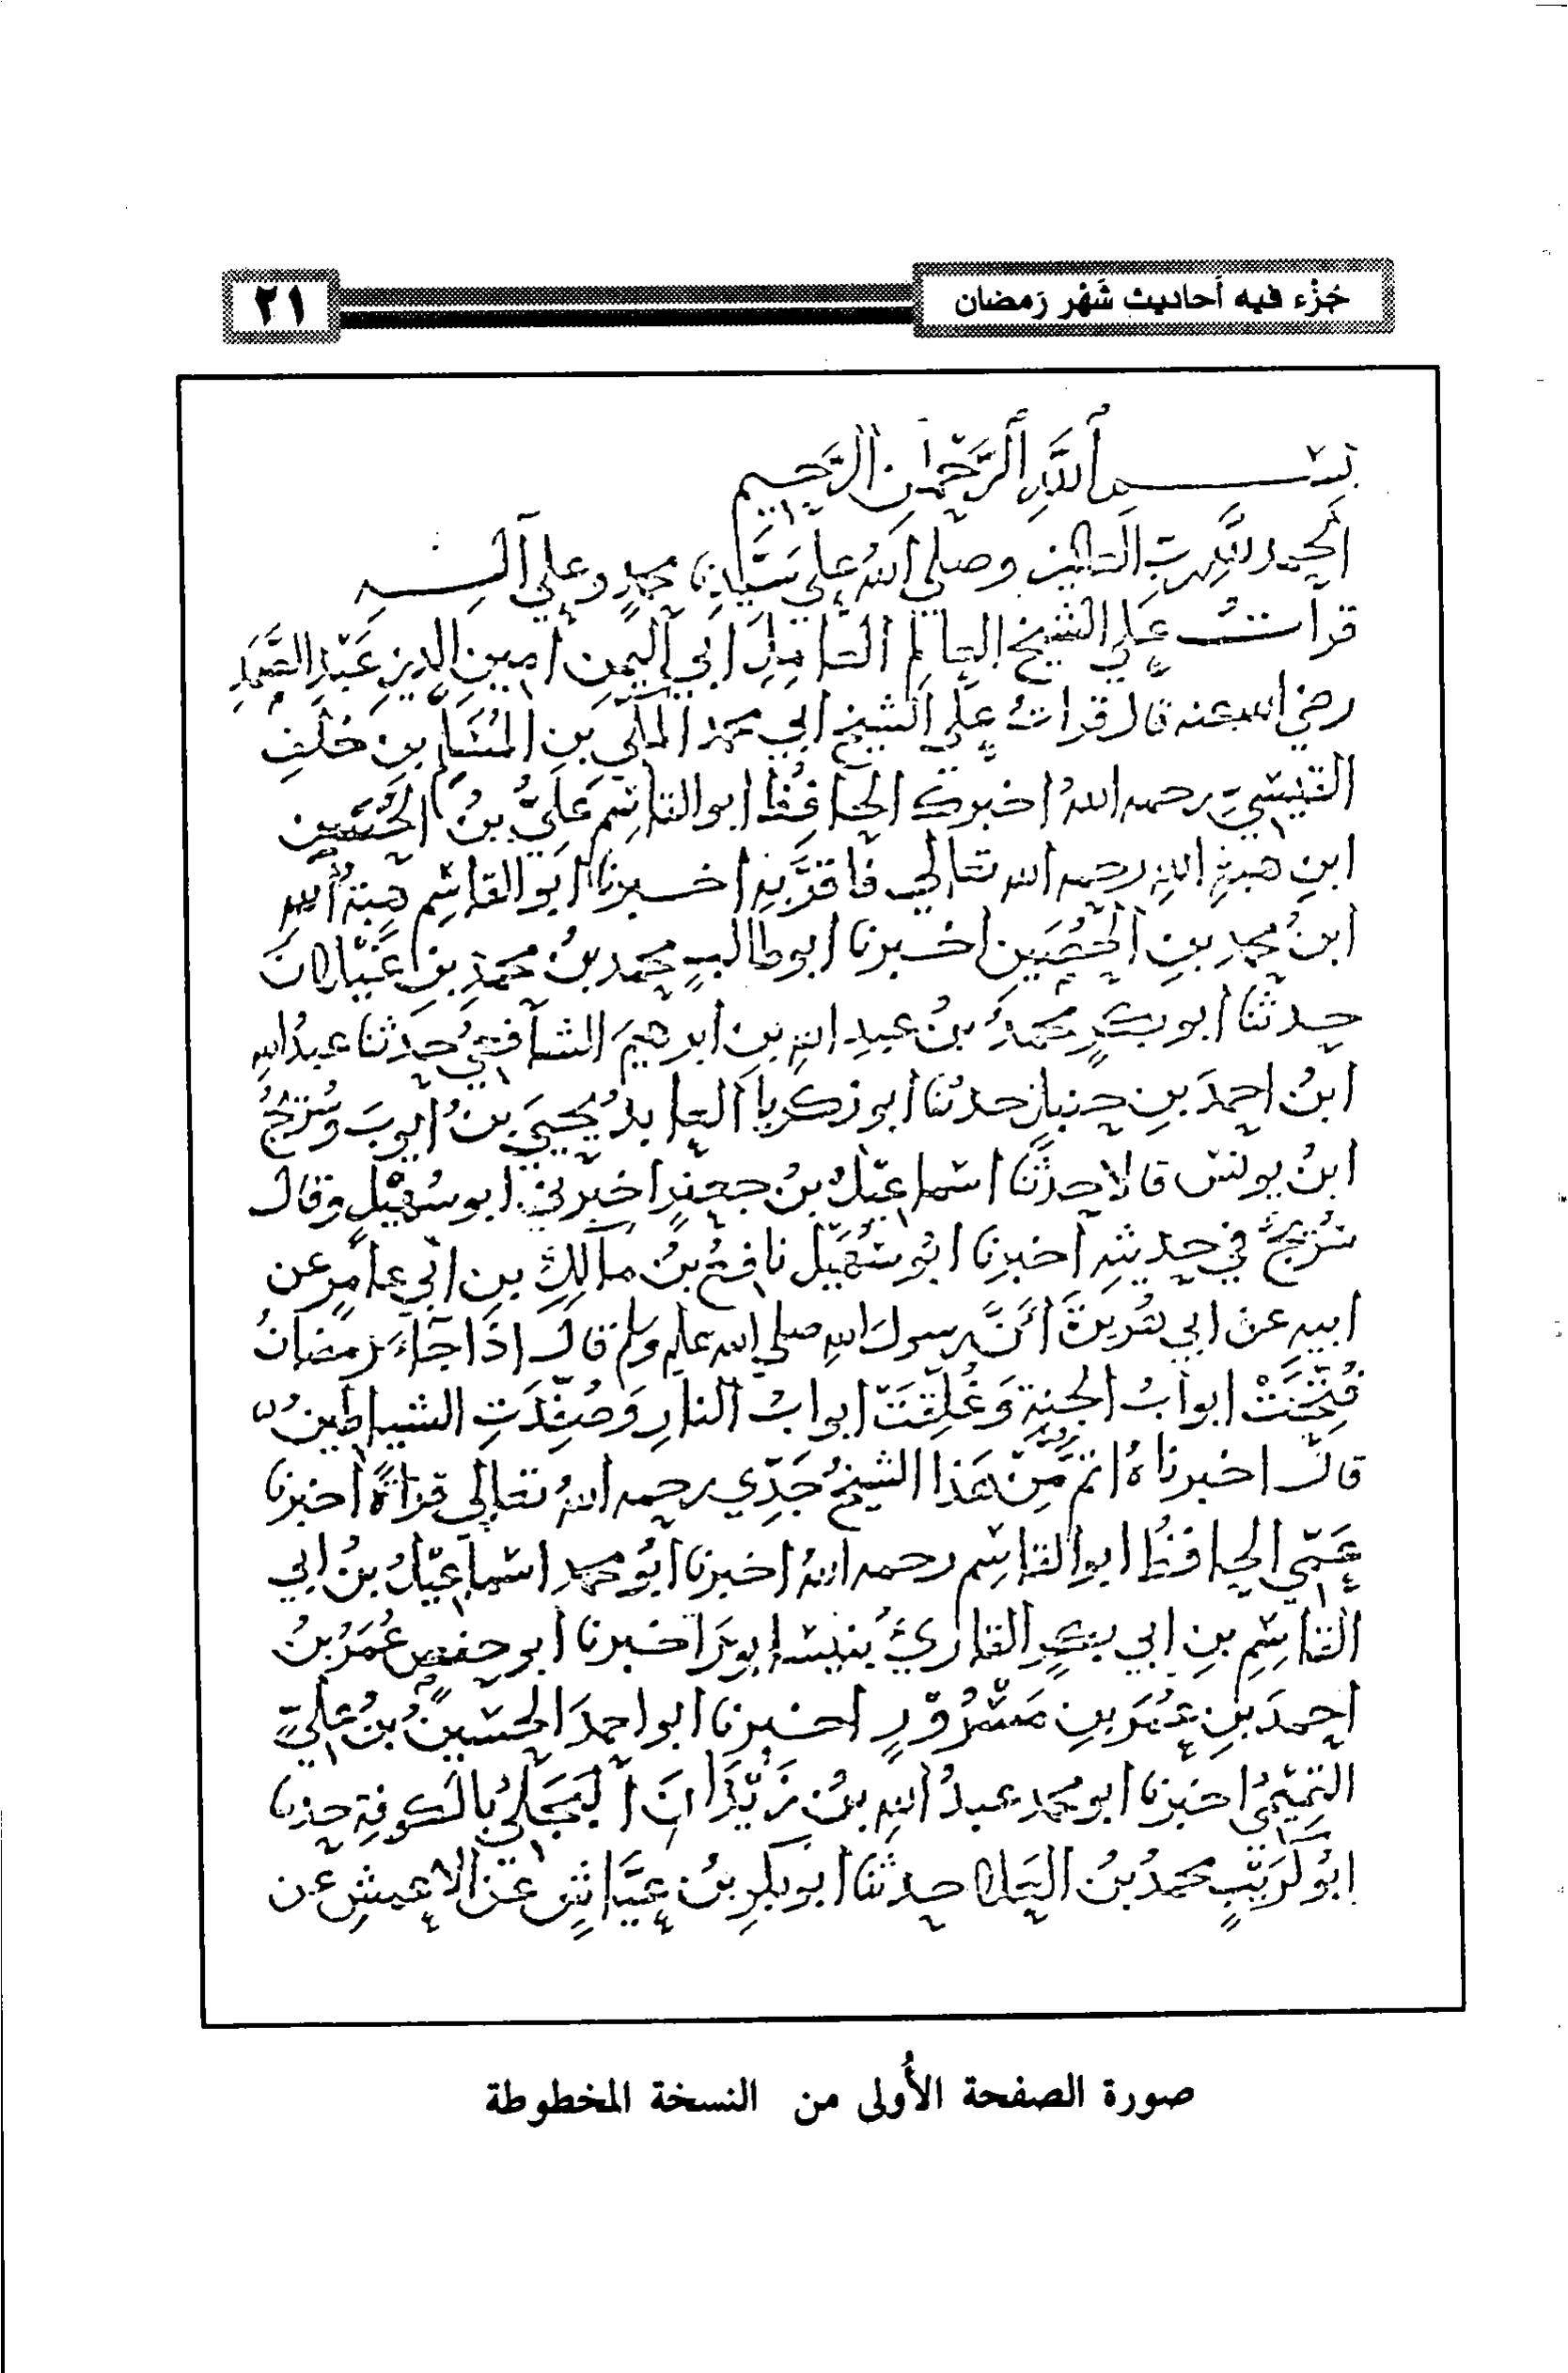 جُزْء فيه أحاديث شَهْر رَمضان
٢١
بسم اللَّهِ الرَّحْمٰنِ الرَّحِيمِ
الحمد للَّهِ ربّ العالمين وصلى اللهُ على سَيِّدِنا محمدٍ وعلى آلِهِ
قرأتُ عَلى الشيخ العالِمِ العامِلِ ابي اليُمنِ امينِ الدينِ عَبْدِ الصَّمَدِ
رضي الله عنه قال قراتُ عَلَى الشيخ ابي محمد المكّي بنِ المُسَلَّم بن خَلَفٍ
القيسيّ رحمه اللهُ اخبرك الحافِظُ ابو القاسِم عَليُّ بنُ الحُسَين
ابنِ هبةِ اللهِ رحمه الله تعالى فاقرَّ بهِ اخبرنا ابو القاسِم هِبةُ اللهِ
ابنُ محمدِ بنِ الحُصَينِ اخبرنا ابو طالبٍ محمد بنُ محمَدِ بنِ غَيْلانَ
حدثنا ابو بكرٍ محمدُ بنُ عبدِ اللهِ بنِ ابرهيمَ الشافعيُّ حدثنا عبدُ اللهِ
ابنُ احمدَ بنِ حنبلٍ حدثنا ابو زكريا العابدُ يحيىَ بنُ ايوبَ وسُرَيجُ
ابنُ يونس قالا حدثنا اسماعيلُ بنُ جعفرٍ اخبرني ابو سُهَيْلٍ وقال
سُرَيجٌ في حديثهِ اخبرنا ابو سُهَيْل نافعُ بنُ مالِكِ بنِ ابي عامرٍ عن
ابيهِ عن ابي هُريرةَ أَنَّ رسولَ اللهِ صلى الله عليه وسلم قال اذا جآءَ رمضانُ
فُتِّحَتْ ابوابُ الجنةِ وَغُلِّقَتْ ابوابُ النارِ وَصُفِّدَتِ الشياطينُ
قال اخبرناهُ اتمَّ مِنْ هَذا الشيخُ جَدِّي رحمه اللهُ تعالى قراءةً اخبرنا
عَمّي الحافظُ ابو القاسِم رحمه اللهُ اخبرنا ابُو محمدٍ اسماعيلُ بنُ ابي
القاسِمِ بنِ ابي بكرٍ القاريُّ بنيسابورَ اخبرنا ابو حفصٍ عُمَرُ بنُ
احمدَ بنِ عُمَرَ بنِ مَسْرُوْرٍ اخبرنا ابو احمدَ الحسَينُ بنُ عليٍّ
التميْميُّ اخبرنا ابو محمد عبدُ اللهِ بنُ زَيْدَانَ البَجَليُّ بالكوفةِ حدثنا
ابُو كُرَيْبٍ محمدُ بنُ العَلا حدثنا ابو بكرِ بنُ عيَّاشٍ عن الاعمشِ عن
صورة الصفحة الأُولى من النسخة المخطوطة